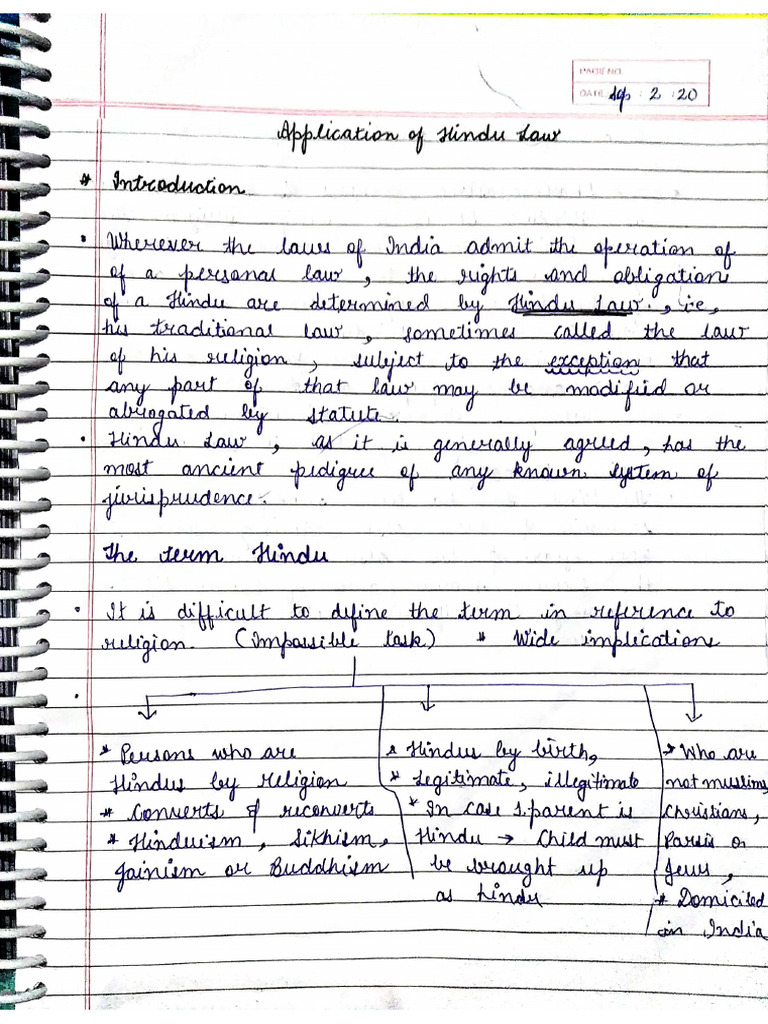 PAGE NO.
DATE: Sep : 2 : 20
Application of Hindu Law
* Introduction
• Wherever the laws of India admit the operation of
of a personal law, the rights and obligation
of a Hindu are determined by Hindu Law., i.e,
his traditional law, sometimes called the law
of his religion, subject to the exception that
any part of that law may be modified or
abrogated by statute.
• Hindu Law, as it is generally agreed, has the
most ancient pedigree of any known system of
jurisprudence.
The term Hindu
• It is difficult to define the term in reference to
religion. (Impossible task) * Wide implications
* Persons who are
Hindus by religion
* Converts & reconverts
* Hinduism, Sikhism,
Jainism or Buddhism
* Hindus by birth,
* Legitimate, illegitimate
* In case 1 parent is
Hindu → Child must
be brought up
as hindu
* Who are
not muslims,
Christians,
Parsis or
Jews,
* Domiciled
in India